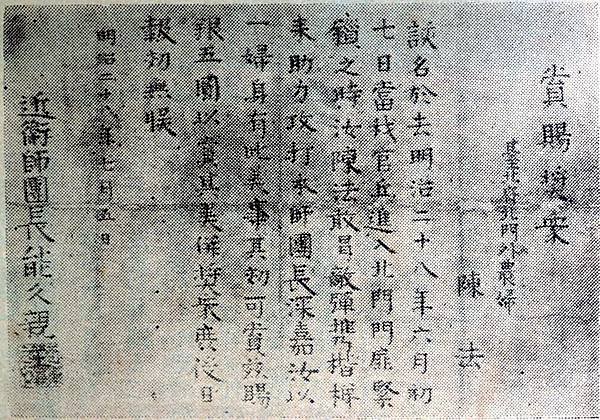 賞賜獎案
臺北府北門外農婦
陳 法
該名於去明治二十八年六月初
七日當我官兵進入北門門扉緊
鎖之時汝陳法敢冒敵彈携楷梯
来助力攻打本師團長深嘉汝以
一婦身有此美事其初可賞茲賜
銀五圓以賞其美俾獎衆庶後日
報初無誤
明治二十八年七月五日
近衛師團長能久親王